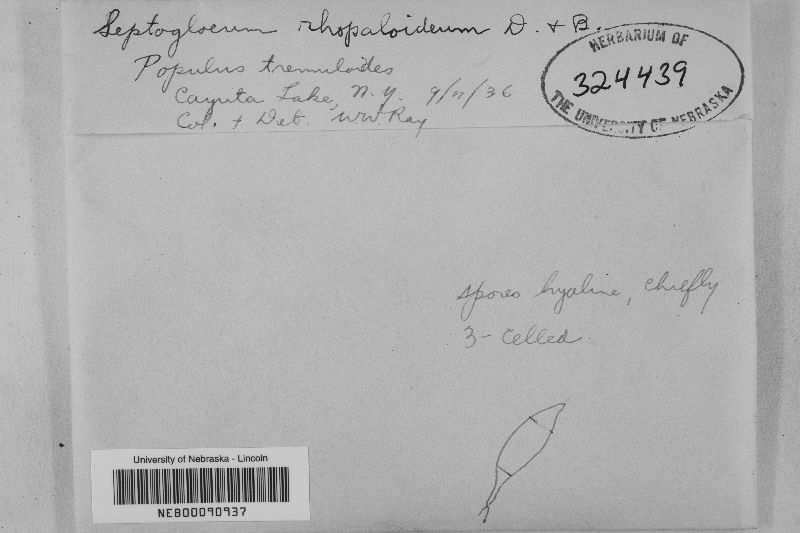 Septogloeum rhopaloideum D. & B.
Populus tremuloides
Cayuta Lake, N.Y. 9/17/36
Col. & Det. WW Ray
HERBARIUM OF
324439
THE UNIVERSITY OF NEBRASKA
spores hyaline, chiefly
3-celled.
University of Nebraska - Lincoln
NEB00090937